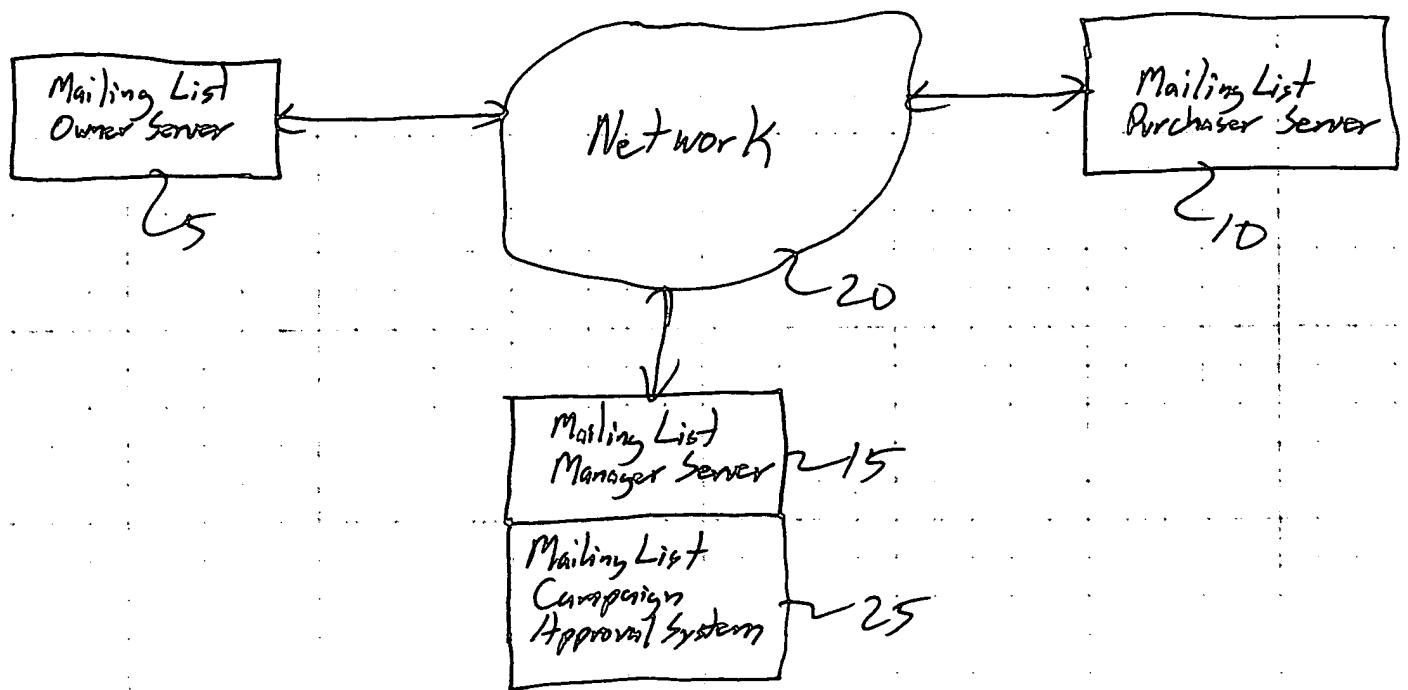 Mailing List
Owner Server
5
Network
20
Mailing List
Purchaser Server
10
Mailing List
Manager Server
15
Mailing List
Campaign
Approval System
25